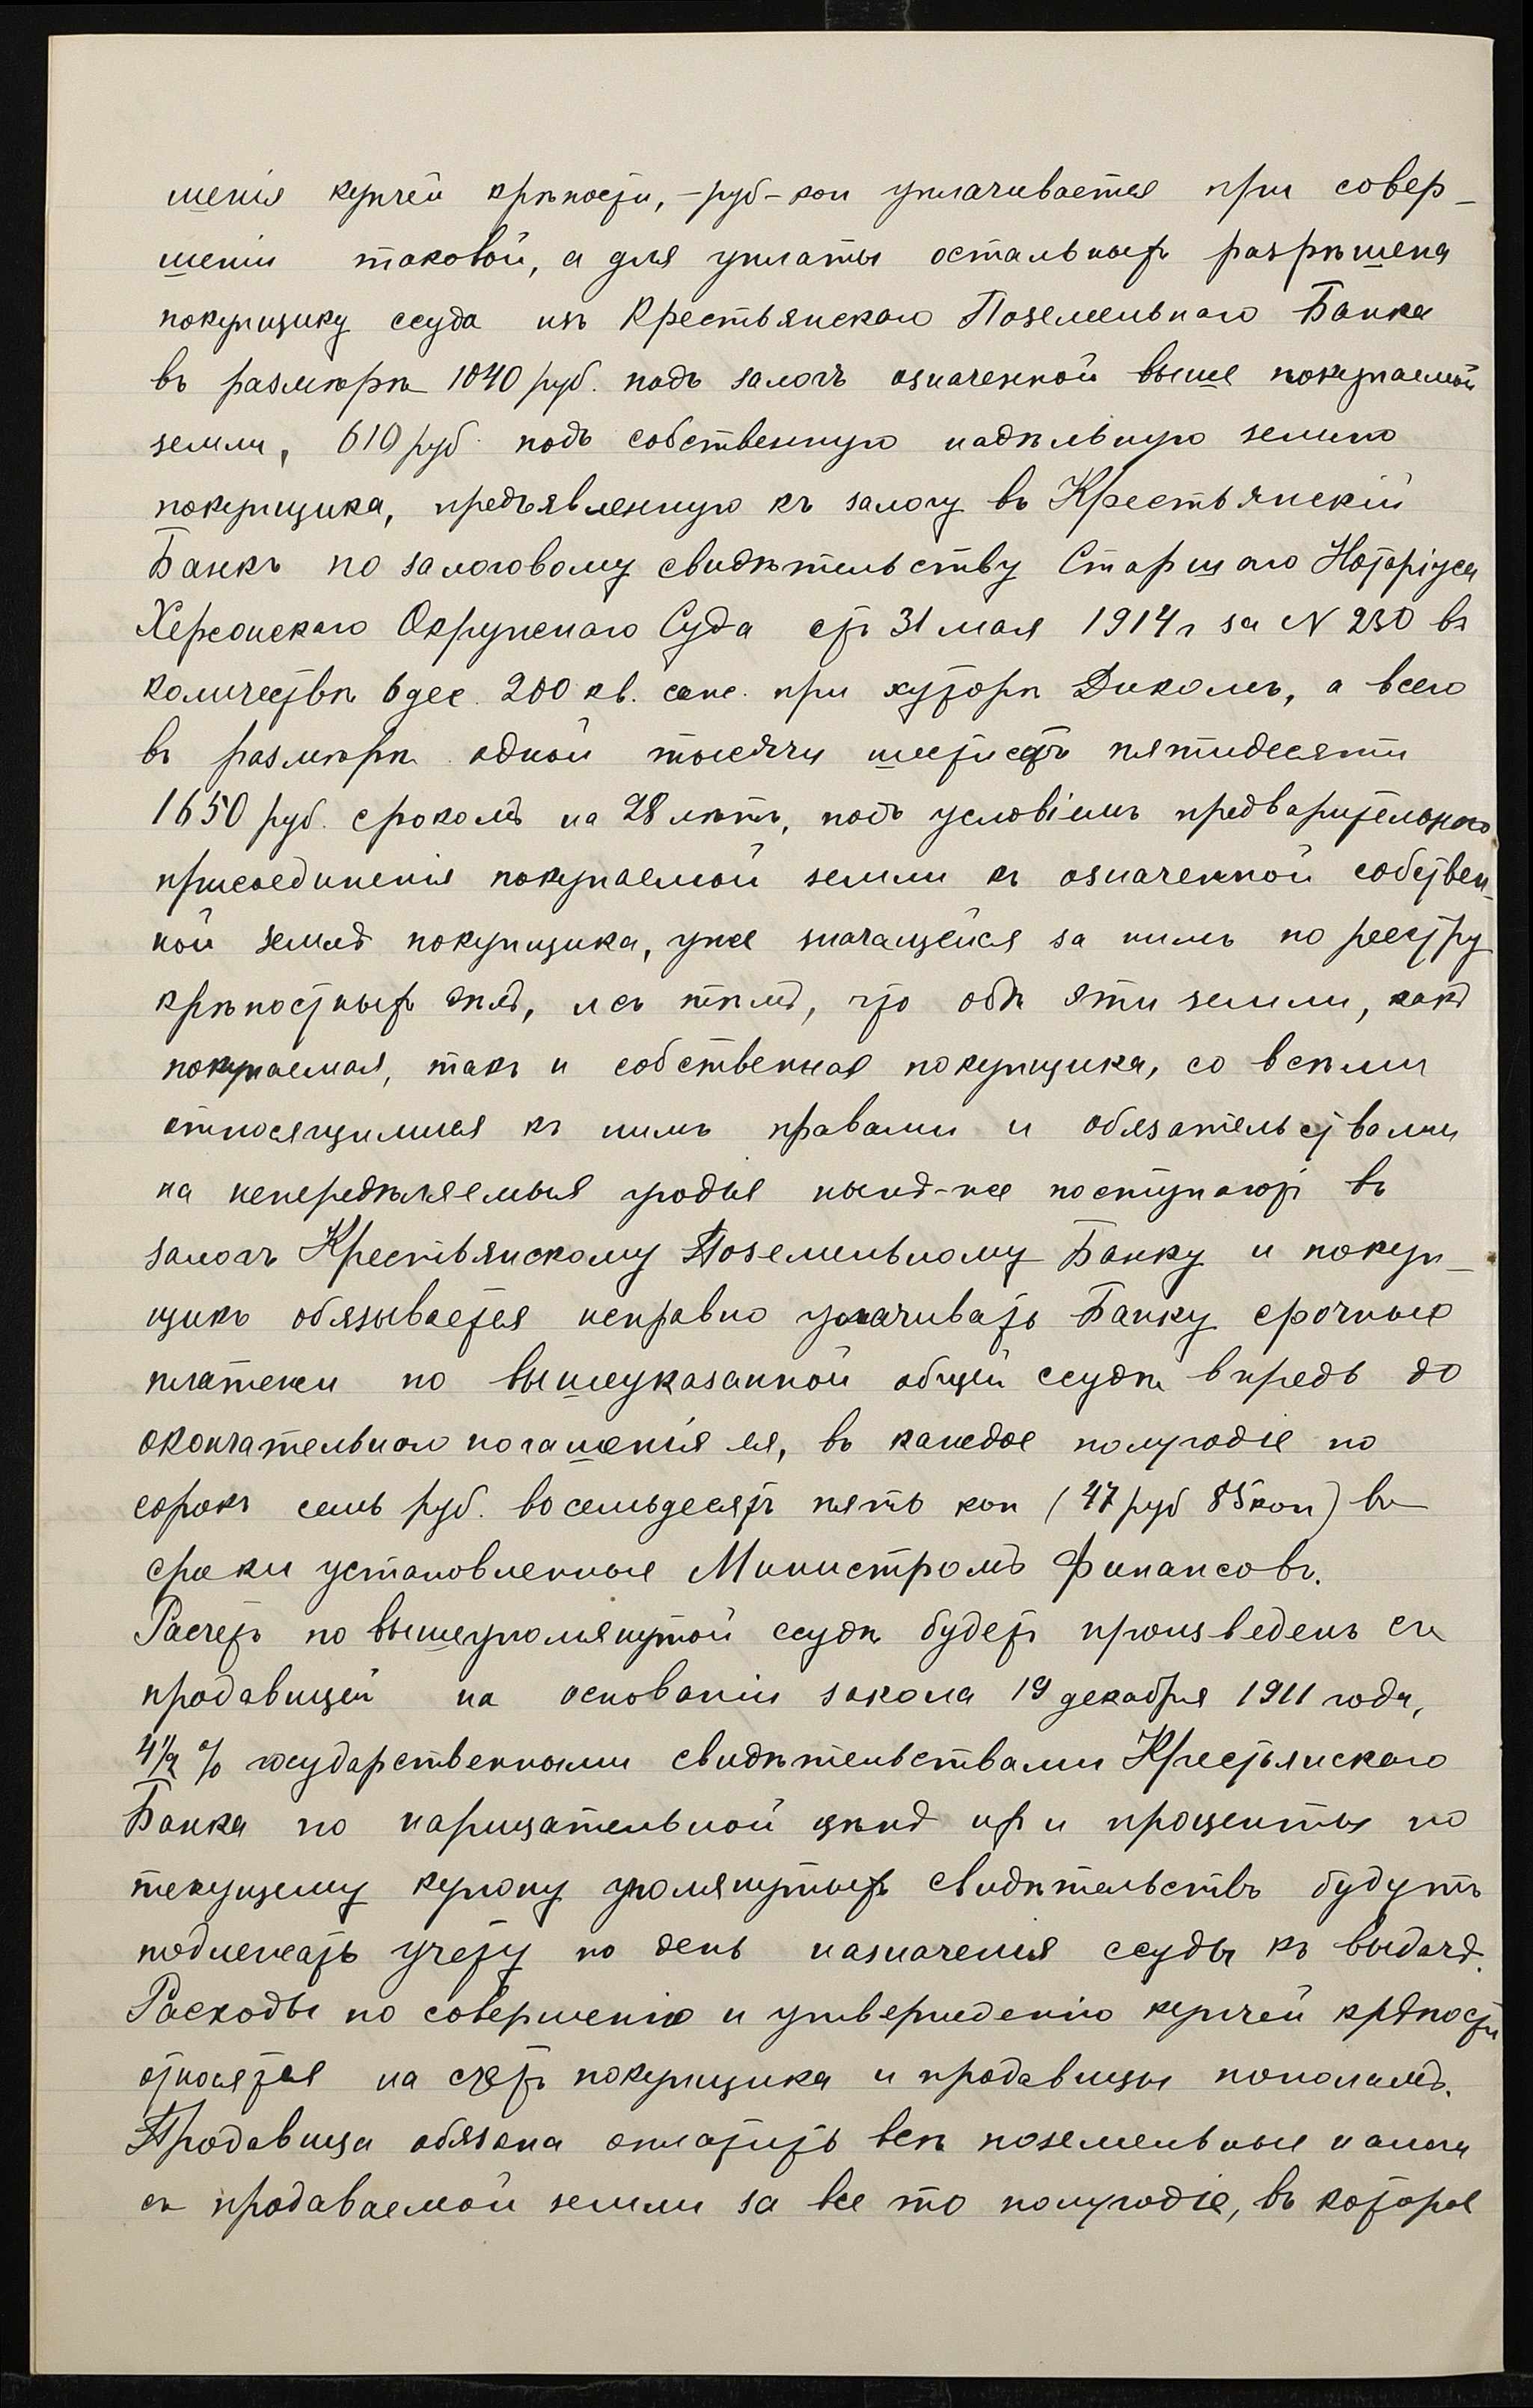 шенія купчей крѣпости, – руб – коп уплачивается при совер-
шеніи таковой, а для уплаты остальныхъ разрѣшена
покупщику ссуда изъ Крестьянскаго Поземельнаго Банка
въ размѣрѣ 1040 руб. подъ залогъ означенной выше покупаемой
земли, 610 руб. подъ собственную надѣльную землю
покупщика, предъявленную къ залогу въ Крестьянскій
Банкъ по залоговому свидѣтельству Старшаго Нотаріуса
Херсонскаго Окружнаго Суда отъ 31 мая 1914 г за N 230 въ
количествѣ 6 дес. 200 кв. саж. при хуторѣ Дикомъ, а всего
въ размѣрѣ одной тысячи шестисотъ пятидесяти
1650 руб. срокомъ на 28 лѣтъ, подъ условіемъ предварительнаго
присоединенія покупаемой земли къ означенной собствен-
ной землѣ покупщика, уже значащейся за нимъ по реестру
крѣпостныхъ дѣлъ, и съ тѣмъ, что обѣ эти земли, какъ
покупаемая, такъ и собственная покупщика, со всѣми
относящимися къ нимъ правами и обязательствами
на непередѣляемыя угодья нынѣ-же поступаютъ въ
залогъ Крестьянскому Поземельному Банку и покуп-
щикъ обязывается исправно уплачивать Банку срочные
платежи по вышеуказанной общей ссудѣ впредь до
окончательнаго погашенія ея, въ каждое полугодіе по
сорокъ семь руб. восемьдесятъ пять коп (47 руб 85 коп) въ
сроки установленные Министромъ Финансовъ.
Расчетъ по вышеупомянутой ссудѣ будетъ произведенъ съ
продавицей на основаніи закона 19 декабря 1911 года,
4½ % государственными свидѣтельствами Крестьянскаго
Банка по нарицательной цѣнѣ ихъ и проценты по
текущему купону упомянутыхъ свидѣтельствъ будутъ
подлежать учету по день назначенія ссуды къ выдачѣ.
Расходы по совершенію и утвержденію купчей крѣпости
относятся на счетъ покупщика и продавицы пополамъ.
Продавица обязана оплатить всѣ поземельные налоги
съ продаваемой земли за все то полугодіе, въ которое